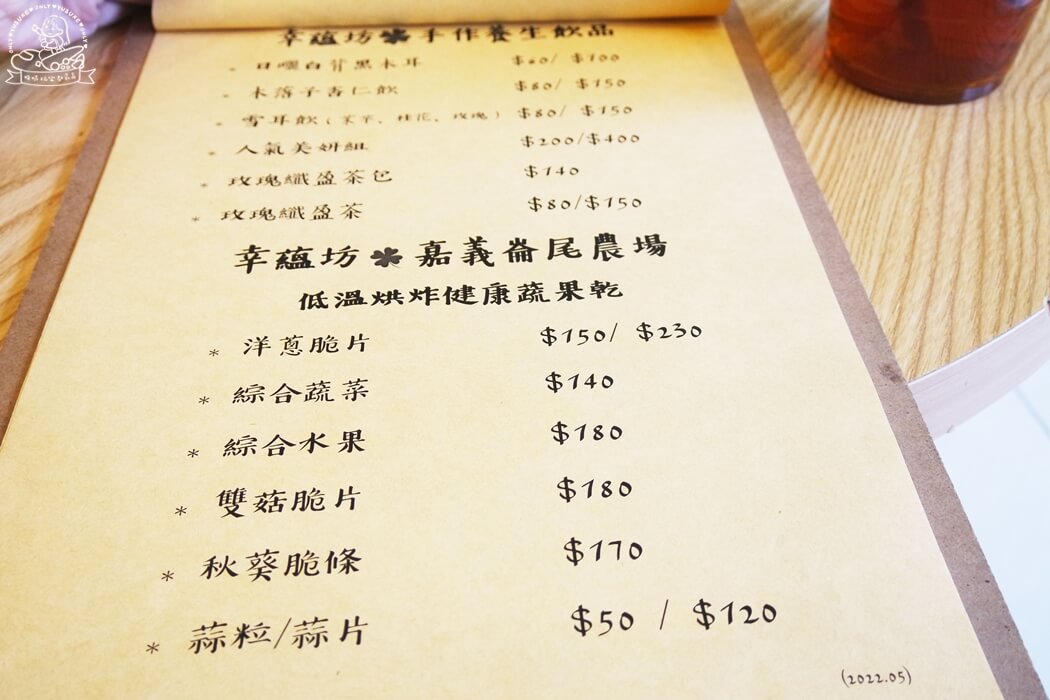 幸蘊坊☘手作養生飲品
* 日曬白背黑木耳 $60/ $100
* 木落子杏仁飲 $80/ $150
* 雪耳飲(茉莉、桂花、玫瑰) $80/ $150
* 人氣美妍組 $200/$400
* 玫瑰纖盈茶包 $140
* 玫瑰纖盈茶 $80/$150
幸蘊坊☘嘉義崙尾農場
低溫烘炸健康蔬果乾
* 洋蔥脆片 $150/ $230
* 綜合蔬菜 $140
* 綜合水果 $180
* 雙菇脆片 $180
* 秋葵脆條 $170
* 蒜粒/蒜片 $50 / $120
(2022.05)